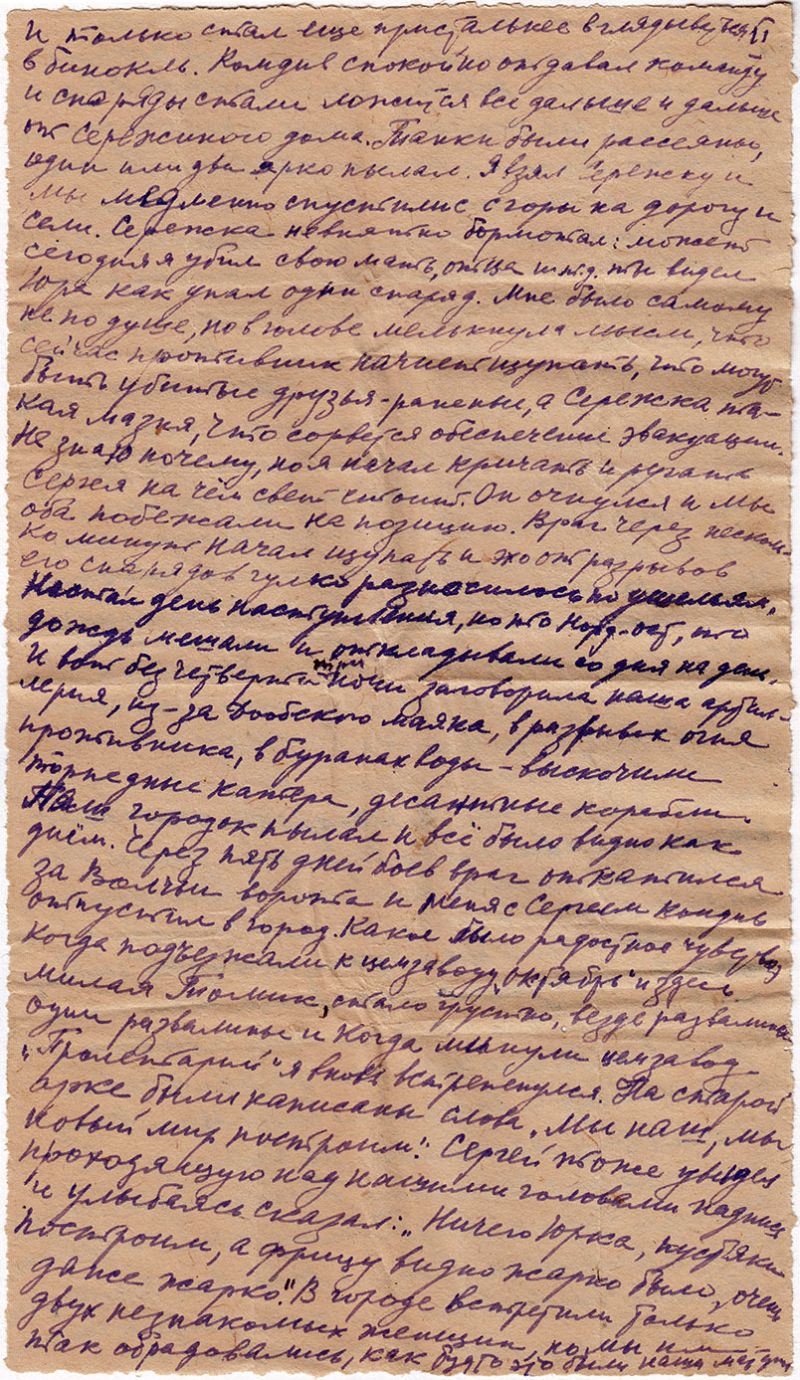 и только стал еще пристальнее вглядываться
в бинокль. Комдив спокойно отдавал команду
и снаряды стали ложится все дальше и дальше
от Сережиного дома. Танки были рассеяны,
один или два ярко пылал. Я взял Сережку и
мы медленно спустились с горы на дорогу и
сели. Сережка невнятно бормотал: может
сегодня я убил свою мать, отца и т.д. ты видел
Юра как упал один снаряд. Мне было самому
не по душе, но в голове мелькнула мысль, что
сейчас противник начнет щупать, что могут
быть убитые друзья-раненые, а Сережка та-
кая мазня, что сорвется обеспечение эвакуации.
Не знаю почему, но я начал кричать и ругать
Сержа на чём свет стоит. Он очнулся и мы
оба побежали на позицию. Враг через несколь-
ко минут начал щупать и эхо от разрывов
его снарядов гулко разносилось по ущельям.
Настал день наступления, но то Норд-ост, то
дождь мешали и откладывали со дня на день.
И вот без четверти три ночи заговорила наша артил-
лерия, из-за Дообского маяка, в разрывах огня
противника, в буранах воды - выскочили
торпедные катера, десантные корабли.
Наш городок пылал и всё было видно как
днём. Через пять дней боев враг откатился
за Волчьи ворота и меня с Сергеем комдив
отпустил в город. Какое было радостное чувство
когда подъезжали к цемзаводу „Октябрь" и здесь
милая Томик, стало грустно, везде развалины
одни развалины и когда минули цемзавод
„Пролетарий" я вновь встрепенулся. На старой
арке были написаны слова „Мы наш, мы
новый мир построим". Сергей тоже увидел
проходящую над нашими головами надпись
и улыбаясь сказал: „Ничего Юрка, пустяки
построим, а фрицу видно жарко было, очень
даже жарко." В городе встретили только
двух незнакомых женщин, но мы им
так обрадовались, как будто это были наши